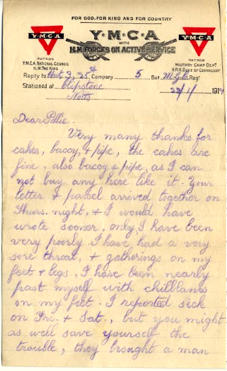 FOR GOD, FOR KING AND FOR COUNTRY
Y.M.C.A
H.M. FORCES ON ACTIVE SERVICE
YMCA
YMCA
PATRON
Y.M.C.A. NATIONAL COUNCIL
H.M. THE KING
PATRON
MILITARY CAMP DEPT
H.R.H. DUKE OF CONNAUGHT
Reply to Hut 3, 25 Company 5 Bat M.G.C. Regt
Stationed at Clipstone 22/1/191
Notts
Dear Pollie.
Very many thanks for
cakes, baccy, & pipe, the cakes are
fine, also baccy & pipe, as I can
not buy any here like it. Your
letter & parcel arrived together on
Thurs. night, & I would have
wrote sooner, only I have been
very poorly I have had a very
sore throat, & gatherings on my
feet & legs, I have been nearly
past myself with chillblains
on my feet. I reported sick
on Fri. & Sat, but you might
as well save yourself the
trouble, they brought a man